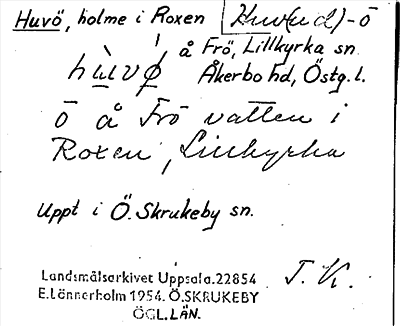 Huvö, holme i Roxen Huv(ud)-ö
å Frö, Lillkyrka sn.
hùvǿ Åkerbo hd, Östg. l.
ö å Frö vatten i
Roxen, Lillkyrka
Uppt i Ö. Skrukeby sn.
Landsmålsarkivet Uppsala. 22854 T. K.
E. Lännerholm 1954. Ö. SKRUKEBY
ÖGL. LÄN.